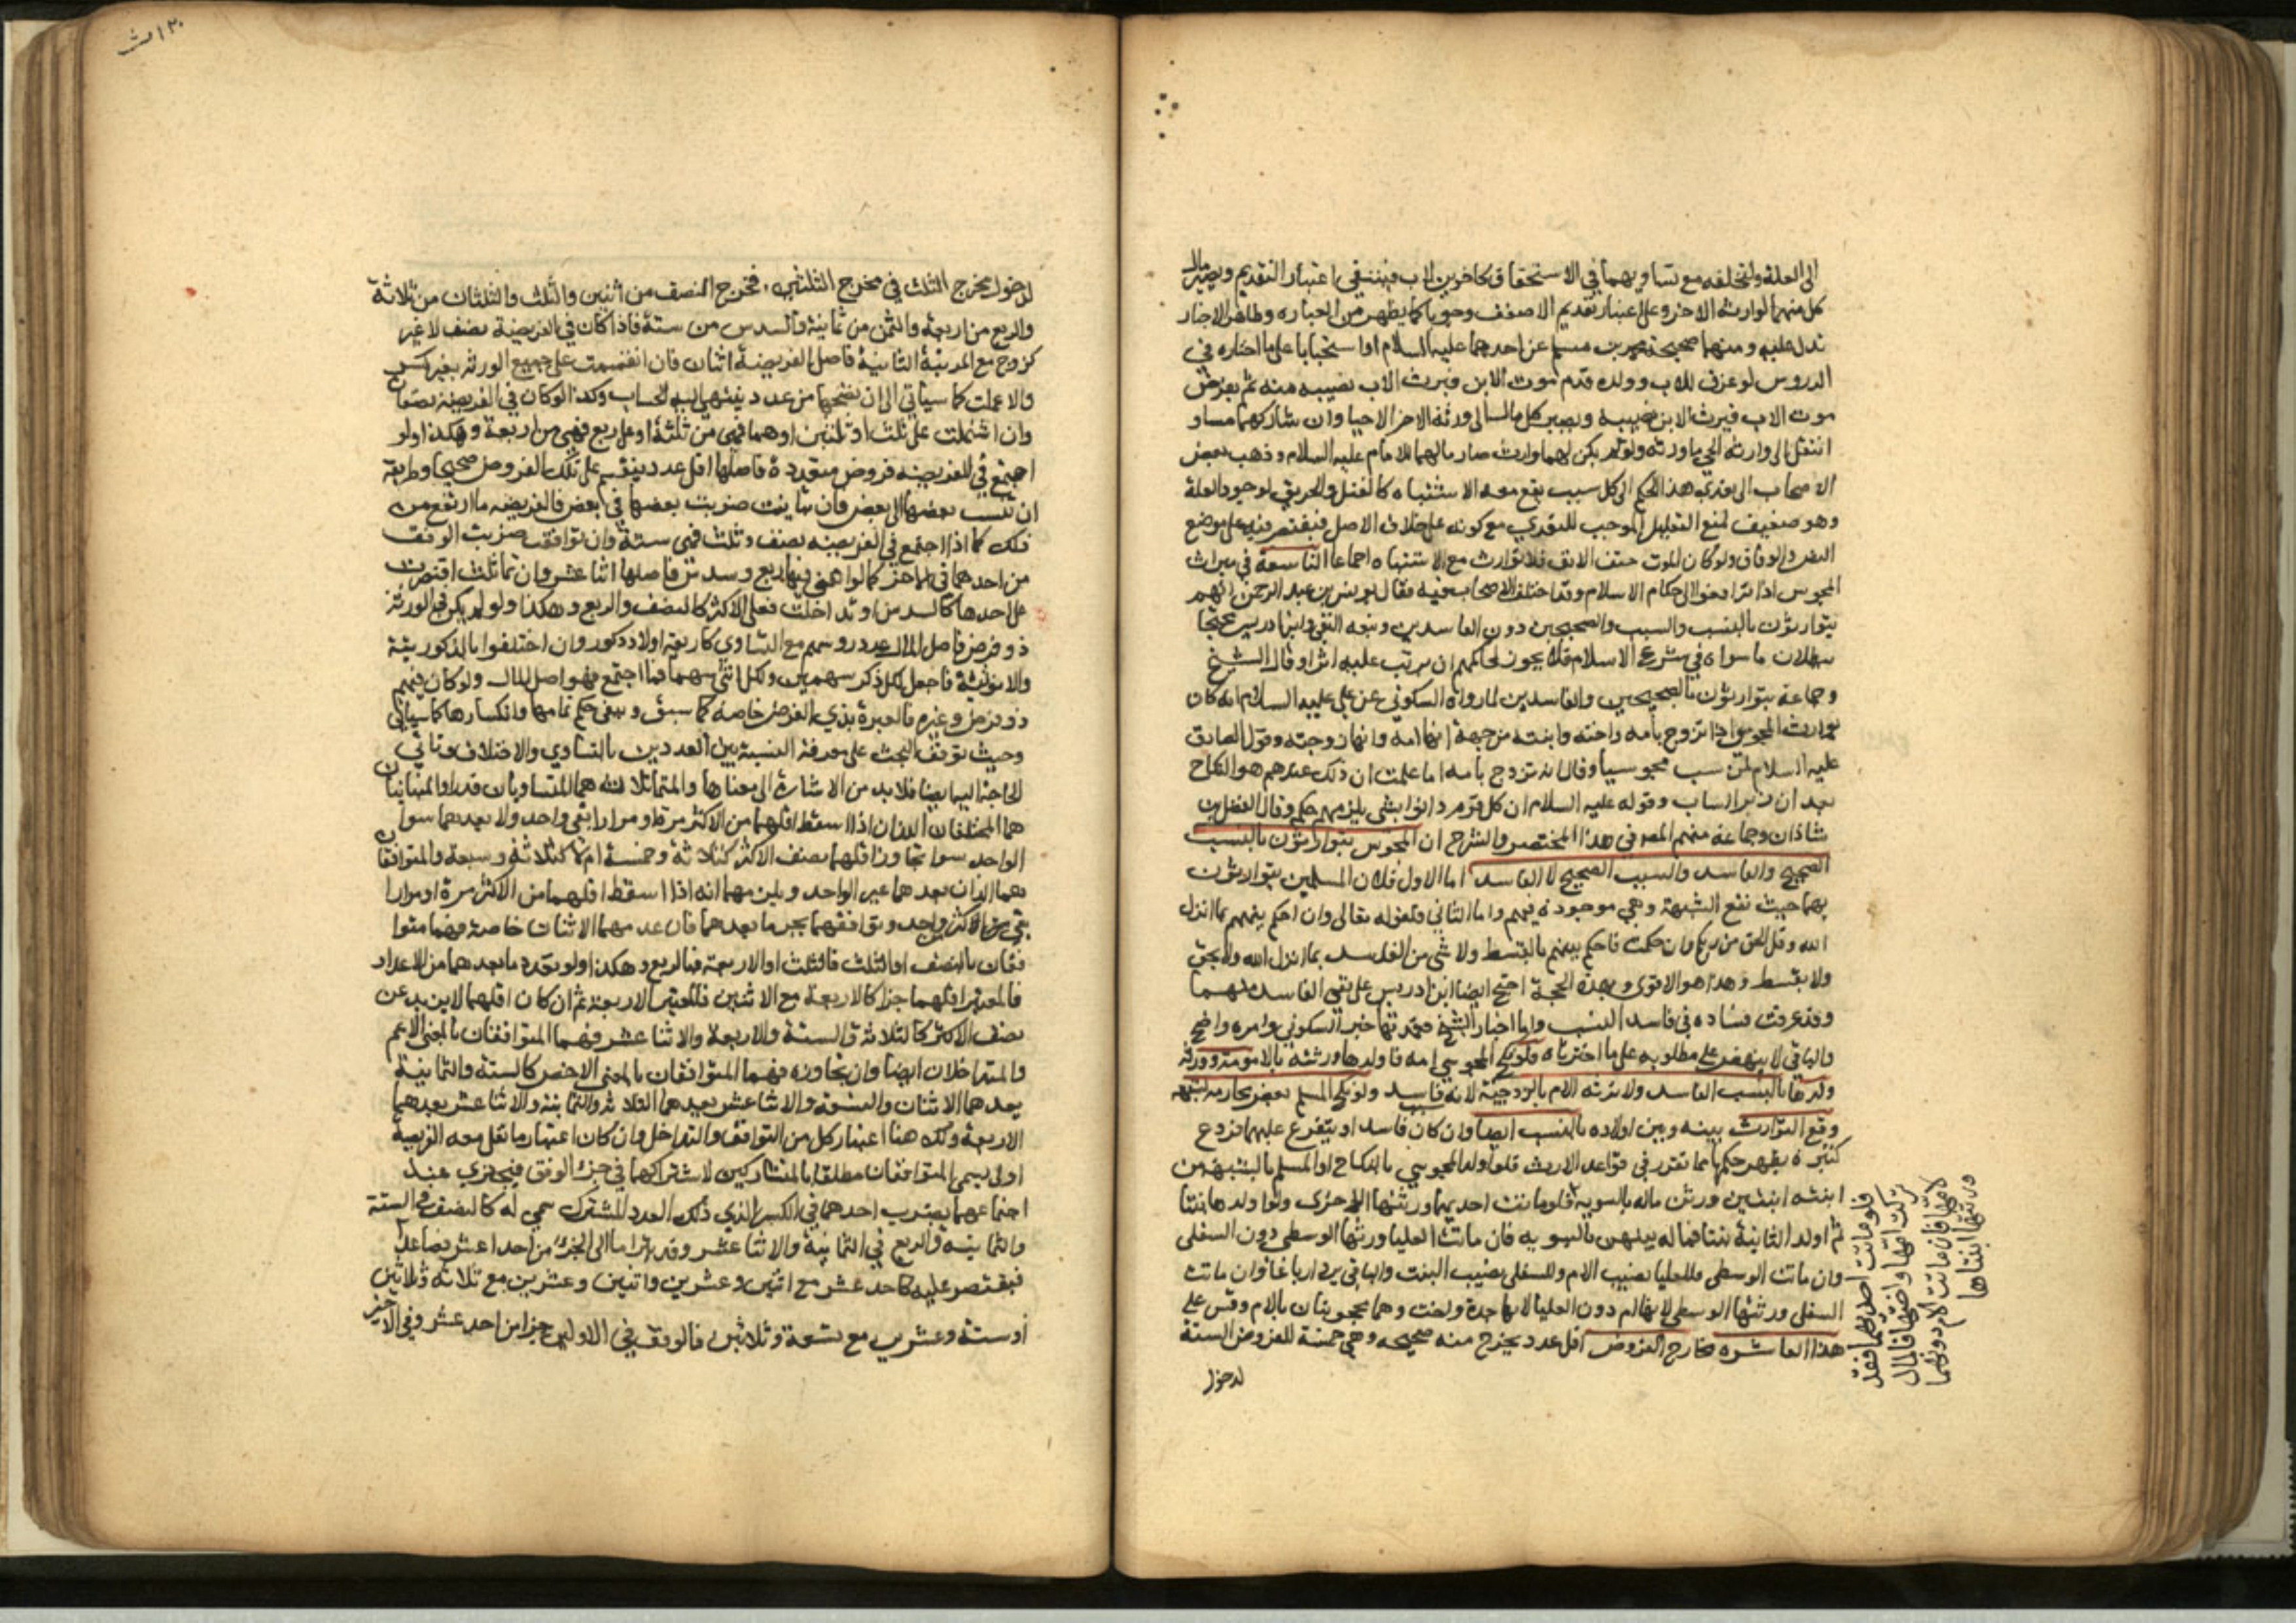 الى العلة ولتخلفه مع تساويهما في الاستحقاق كاخوين لاب فينتفي اعتبار التقديم ويصير مال
كل منهما لوارثه الاخر وعلى اعتبار تقديم الاضعف وجوبا كما يظهر من العباره وظاهر الاخبار
تدل عليه ومنها صحيحة محمد بن مسلم عن احدهما عليه السلام او استحبابا على ما اختاره في
الدروس لو غرق للاب وولده قدم موت الابن فيرث الاب نصيبه منه ثم يفرض
موت الاب فيرث الابن نصيبه ويصير كل مال الى ورثة الاخر الاحيا وان شاركهما مساو
انتقل الى وارثه الحي ما ورثه ولو لم يكن لهما وارث صار مالهما للامام عليه السلام وذهب بعض
الاصحاب الى تعدي هذا الحكم الى كل سبب يقع معه الاشتباه كالقتل والحريق لوجود العلة
وهو ضعيف لمنع التعليل الموجب للتعدي مع كونه على خلاف الاصل فيقتصر فيه على موضع
النص والوفاق ولو كان الموت حتف الانف فلا توارث مع الاشتباه اجماعا التاسعة في ميراث
المجوس اذا ترافعوا الى حكام الاسلام وقد اختلف الاصحاب فيه فقال يونس بن عبد الرحمن انهم
يتوارثون بالنسب والسبب الصحيحين دون الفاسدين وتبعه التقي وابن ادريس محتجا
ببطلان ما سواه في شرع الاسلام فلا يجوز لحاكمهم ان يرتب عليه اثرا وقال الشيخ
وجماعة يتوارثون بالصحيحين والفاسدين لما رواه السكوني عن علي عليه السلام انه كان
يورث المجوس اذا تزوج بامه واخته وابنته من جهة انها امه وانها زوجته وقول الصادق
عليه السلام لمن سب مجوسيا وقال انه تزوج بامه اما علمت ان ذلك عندهم هو النكاح
بعد ان زبر الساب وقوله عليه السلام ان كل قوم دانوا بشى يلزمهم حكمه وقال الفضل بن
شاذان وجماعة منهم المصر في هذا المختصر والشرح ان المجوس يتوارثون بالنسب
الصحيح والفاسد والسبب الصحيح لا الفاسد اما الاول فلان المسلمين يتوارثون
بهما حيث تقع الشبهة وهي موجودة فيهم واما الثاني فلقوله تعالى وان احكم بينهم بما انزل
الله وقل الحق من ربكم وان حكمت فاحكم بينهم بالقسط ولا شى من الفاسد بما انزل الله ولا بحق
ولا بقسط وهذا هو الاقوى وبهذه الحجة احتج ايضا ابن ادريس على نفي الفاسد منهما
وقد عرفت فساده في فاسد النسب واما اخبار الشيخ فعمدتها خبر السكوني وامره واضح
والباقي لا ينهض على مطلوبه على ما اخترناه فلو نكح المجوسي امه فاولدها ورثته بالامومة وورثه
ولدها بالنسب الفاسد ولا ترثه الام بالزوجية لانه سبب فاسد ولو نكح المسلم بعض محارمه لشبهة
وقع التوارث بينه وبين اولاده بالنسب ايضا وان كان فاسدا ويتفرع عليهما فروع
كثيره يظهر حكمها مما تقرر في قواعد الارث فلو اولد المجوسي بالنكاح او المسلم بالشبهة من
ابنته ابنتين ورثن ماله بالسوية فلو ماتت احديهما ورثتها الاخرى ولو اولدها بنتا
ثم اولد الثانية بنتا فماله بينهن بالسويه فان ماتت العليا ورثتها الوسطى دون السفلى
وان ماتت الوسطى فللعليا نصيب الام وللسفلى نصيب البنت والباقي يرد ارباعا وان ماتت
السفلى ورثتها الوسطى لانها ام دون العليا لانها جدة واخت وهما محجوبتان بالام وقس على
هذا العاشره مخارج الفروض اقل عدد يخرج منه صحيحه وهي خمسة للفروض الستة
لدخول
فلو ماتت احديهما فقد
تركت امها واختها فالمال
لامها فان ماتت الام دونهما
ورثتها ابنتاها
لدخول مخرج الثلث في مخرج الثلثين، فمخرج النصف من اثنين والثلث والثلثان من ثلاثة
والربع من اربعة والثمن من ثمانية والسدس من ستة فاذا كان في الفريضة نصف لا غير
كزوج مع المرتبة الثانية فاصل الفريضة اثنان فان انقسمت على جميع الورثه بغير كسر
والا عملت كما سياتي الى ان تصححها من عدد ينتهي اليه الحساب وكذا لو كان في الفريضه نصفان
وان اشتملت على ثلث او ثلثين او هما فهى من ثلثة او على ربع فهى من اربعة وهكذا ولو
اجتمع في الفريضه فروض متعددة فاصلها اقل عدد ينقسم على تلك الفروض صحيحا وطريقة
ان تنسب بعضها الى بعض فان تباينت ضربت بعضها في بعض فالفريضه ما ارتفع من
ذلك كما اذا اجتمع في الفريضه نصف وثلث فهى ستة وان توافقت ضربت الوفق
من احدهما في الاخر كما لو اتفق فيها ربع وسدس فاصلها اثنا عشر وان تماثلت اقتصرت
على احدها كالسدسين او تداخلت فعلى الاكثر كالنصف والربع وهكذا ولو لم يكن في الورثة
ذو فرض فاصل المال عدد روسهم مع التساوي كاربعة اولاد ذكور وان اختلفوا بالذكورية
والانوثية فاجعل لكل ذكر سهمين ولكل انثى سهما فما اجتمع فهو اصل المال ولو كان فيهم
ذو فرض وغيره فالعبرة بذي الفرض خاصه كما سبق ويبقى حكم تمامها وانكسارها كما سياتي
وحيث توقف البحث على معرفة النسبة بين العددين بالتساوي والاختلاف وتاتي
الحاجة اليها ايضا فلا بد من الاشارة الى معناها والمتماثلان هما المتساويان قدرا والمتباينان
هما المختلفان اللذان اذا اسقط اقلهما من الاكثر مرة او مرارا بقي واحد ولا يعدهما سوا
الواحد سوا تجاوز اقلهما نصف الاكثر كثلاثة وخمسة ام لا كثلاثة وسبعة والمتوافقان
هما اللذان يعدهما غير الواحد ويلزمهما انه اذا اسقط اقلهما من الاكثر مرة او مرارا
بقي اكثر من واحد وتوافقهما بجزء ما يعدهما فان عدهما الاثنان خاصة فهما متوا
فقان بالنصف او الثلث فالثلث او الاربعة فبالربع وهكذا ولو تعدد ما يعدهما من الاعداد
فالمعتبر اقلهما جزا كالاربعة مع الاثنين فالمعتبر الاربعة ثم ان كان اقلهما لا يزيد عن
نصف الاكثر كالثلاثة والستة والاربعة والاثنا عشر فهما المتوافقان بالمعنى الاعم
والمتداخلان ايضا وان تجاوزه فهما المتوافقان بالمعنى الاخص كالستة والثمانية
يعدهما الاثنان والتسعة والاثنا عشر يعدهما الثلاثة والثمانية والاثنا عشر يعدهما
الاربعة ولك هنا اعتبار كل من التوافق والتداخل وان كان اعتبار ما تقل معه الفريضة
اولى ويسمى المتوافقان مطلقا بالمتشاركين لاشتراكهما في جزء الوفق فيجتزي عند
اجتماعهما بضرب احدهما في الكسر الذي ذلك العدد المشترك سمي له كالنصف في الستة
والثمانيه والربع في الثمانية والاثنا عشر وقد يترامى الى الجزء من احد اعشر فصاعدا
فيقتصر عليه كاحد عشر مع اثنين وعشرين واثنين وعشرين مع ثلاثة وثلاثين
او ستة وعشرين مع تسعة وثلاثين فالوفق في الاوليين جزء من احد عشر وفي الاخير